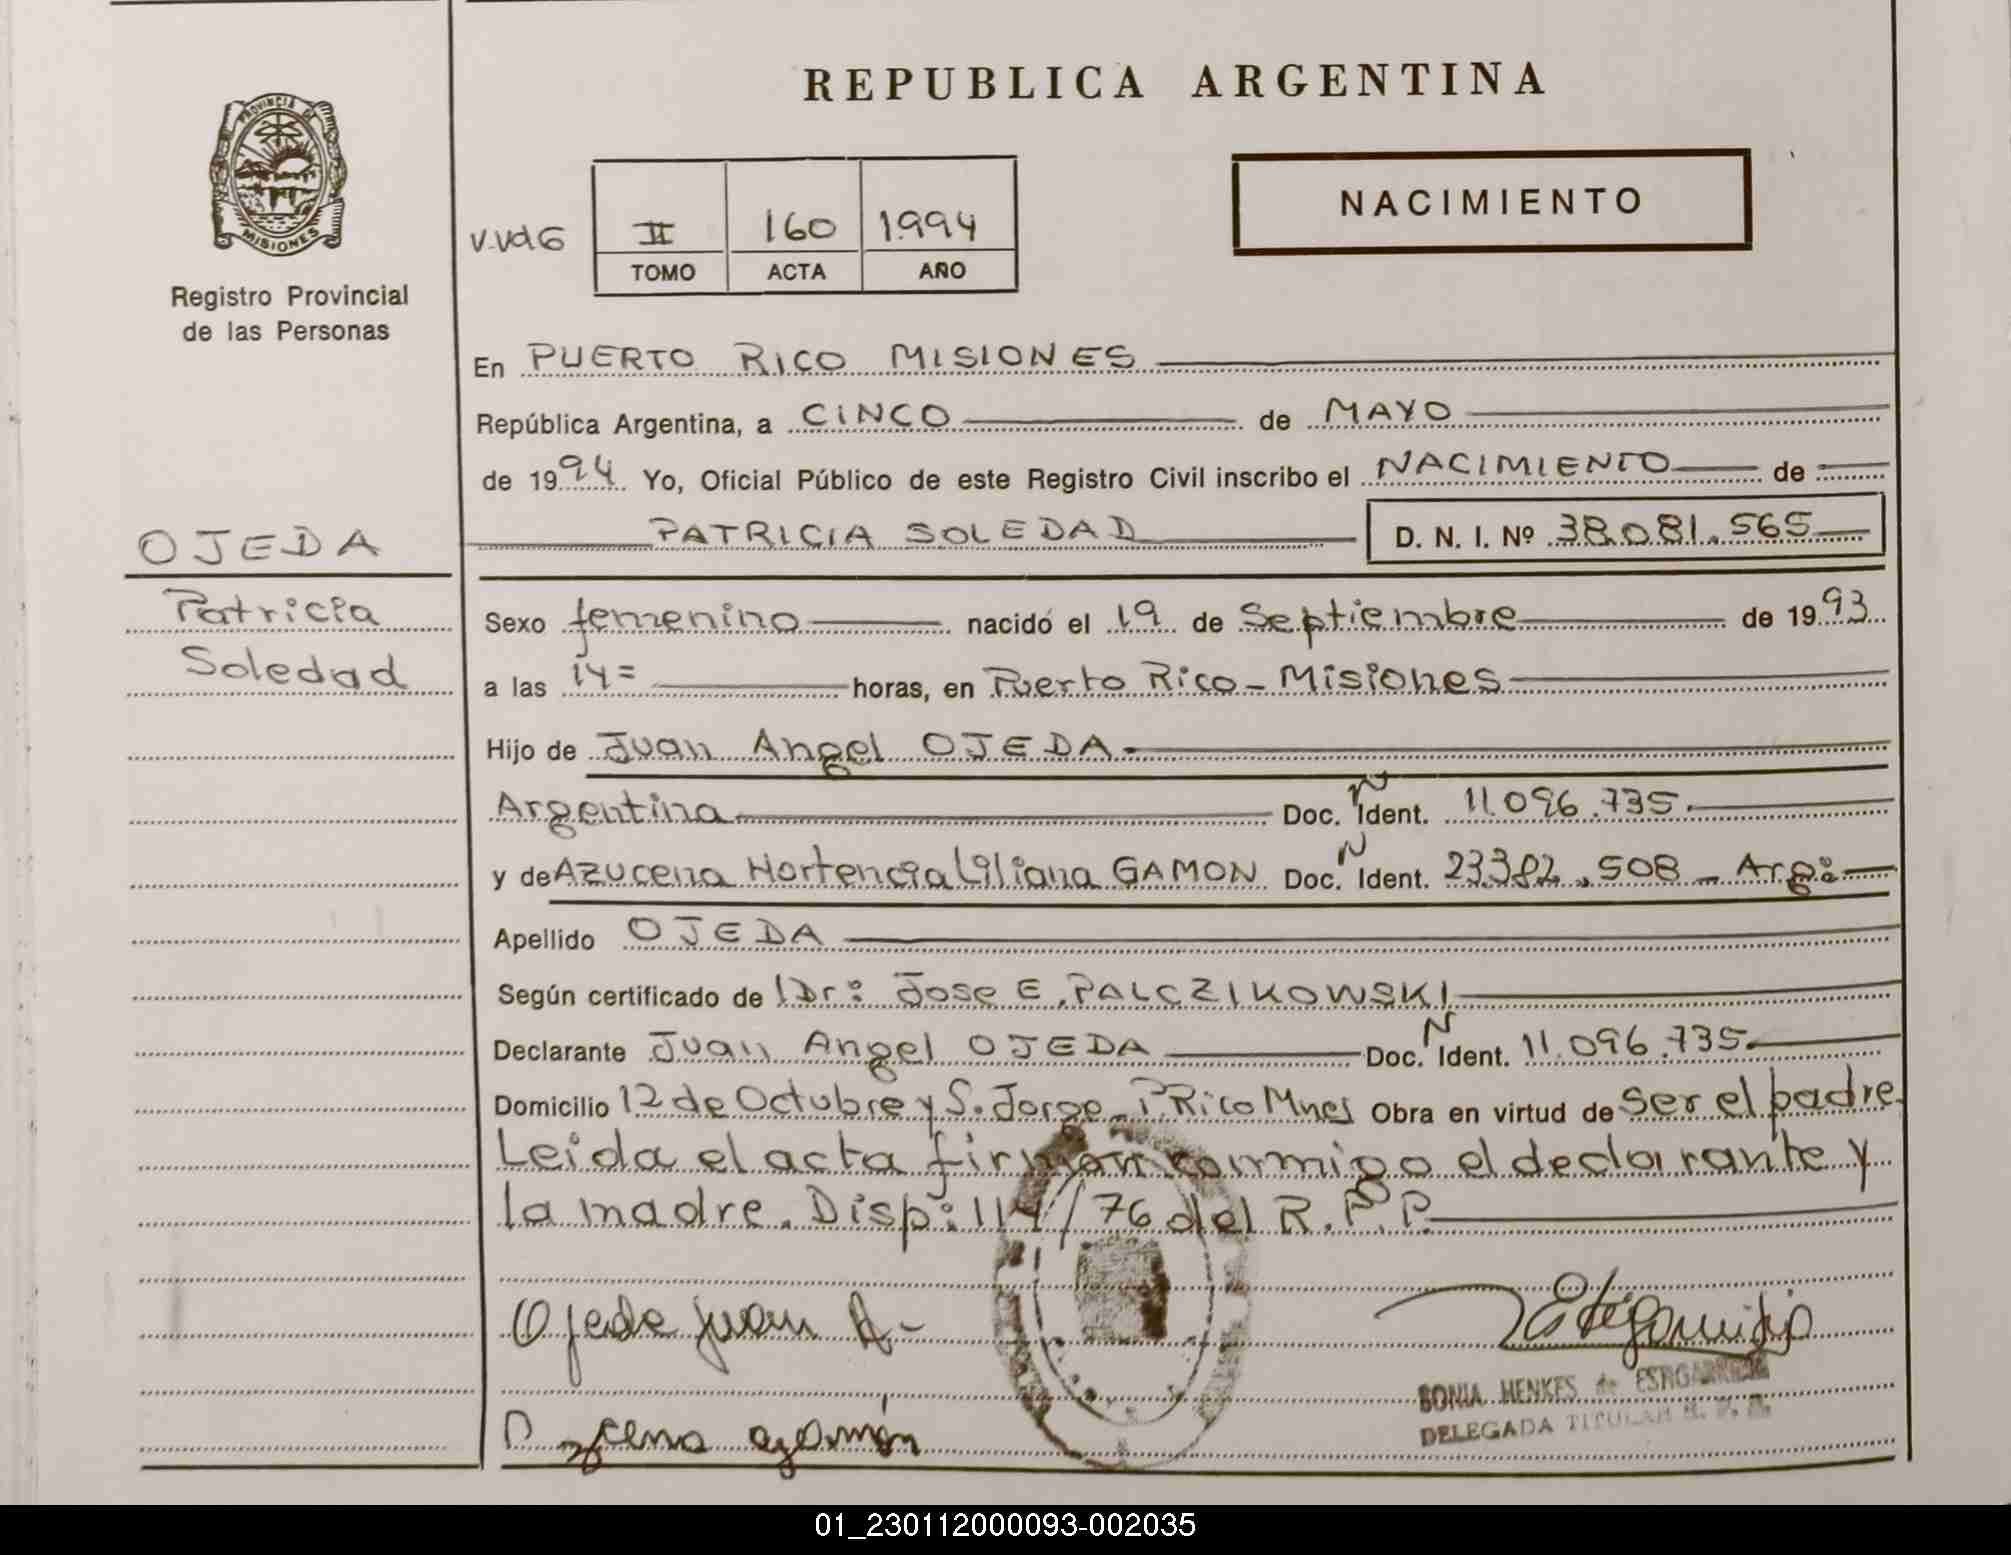 REPUBLICA ARGENTINA
PROVINCIA DE
MISIONES
Registro Provincial
de las Personas
V.VdG
II 160 1994
TOMO ACTA AÑO
NACIMIENTO
En PUERTO RICO MISIONES
República Argentina, a CINCO de MAYO
de 1994 Yo, Oficial Público de este Registro Civil inscribo el NACIMIENTO de
PATRICIA SOLEDAD D. N. I. Nº 38.081.565
OJEDA
Patricia
Soledad
Sexo femenino nacido el 19 de Septiembre de 1993
a las 14= horas, en Puerto Rico - Misiones
Hijo de Juan Angel OJEDA.
Argentina Doc. N Ident. 11.096.735.
y de Azucena Hortencia Liliana GAMON Doc. N Ident. 23.382.508 - Arg:
Apellido OJEDA
Según certificado de Dr: Jose E. PALCZIKOWSKI
Declarante Juan Angel OJEDA Doc. N Ident. 11.096.735.
Domicilio 12 de Octubre y S. Jorge - P. Rico Mnes Obra en virtud de ser el padre.
Leida el acta firman conmigo el declarante y
la madre. Disp: 114/76 del R.P.P.
Ojeda juan A-
SONIA HENKES de
DELEGADA TITULAR R. P. P.
01_230112000093-002035